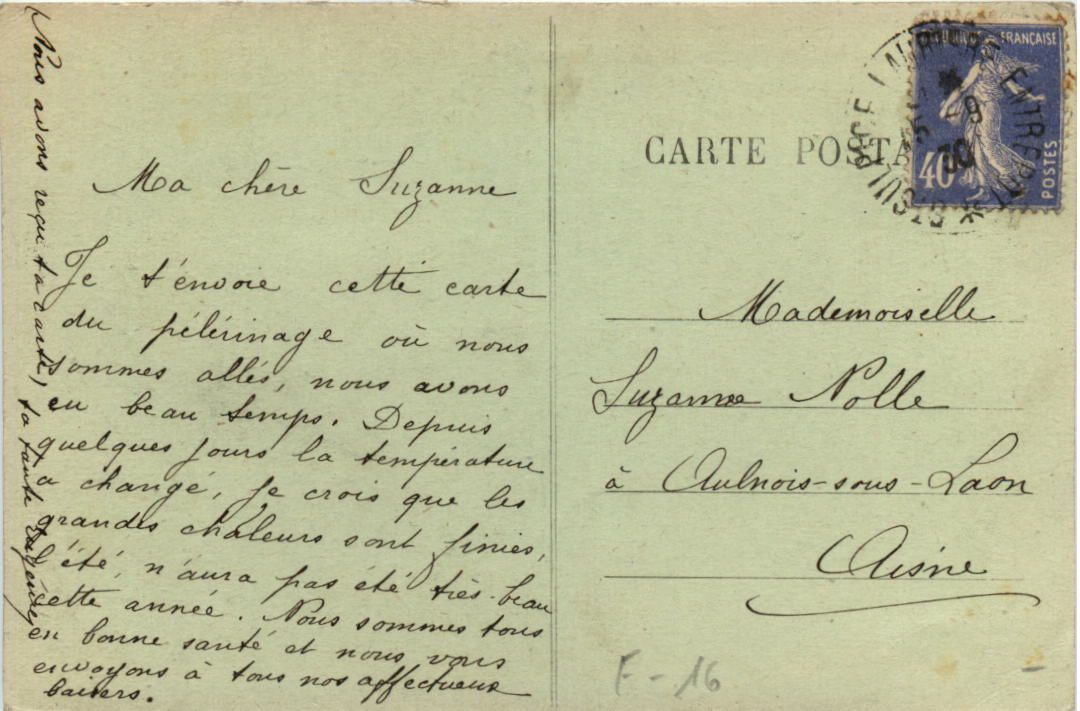 Ma chère Suzanne
Je t'envoie cette carte
du pélérinage où nous
sommes allés, nous avons
eu beau temps. Depuis
quelques jours la température
a changé, je crois que les
grandes chaleurs sont finies,
l'été n'aura pas été très beau
cette année. Nous sommes tous
en bonne santé et nous vous
envoyons à tous nos affectueux
baisers.
Nous avons reçu ta carte, ta tante
CARTE POSTA
FRANÇAISE
40c
POSTES
ENTREPOT
9
30
Mademoiselle
Suzanne Nolle
à Aulnois-sous-Laon
Aisne
F-16